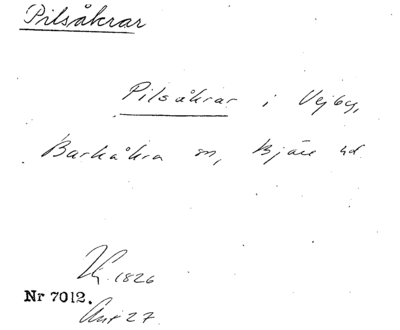 Pilsåkrar
Pilsåkrar i Vejby,
Barkåkra sn, Bjäre hd
1826
Nr 7012.
27